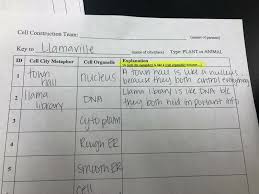 Cell Construction Team:
(names of persons)
Key to Llamaville
(name of city/base) Type: PLANT or ANIMAL
ID Cell City Metaphor Cell Organelle Explanation
1 town hall nucleus A town hall is like a nucleus because they both control everything
2 llama library DNA Llama library is like DNA b/c they both hold important info
3 cytoplasm
4 Rough ER
5 smooth ER
cell